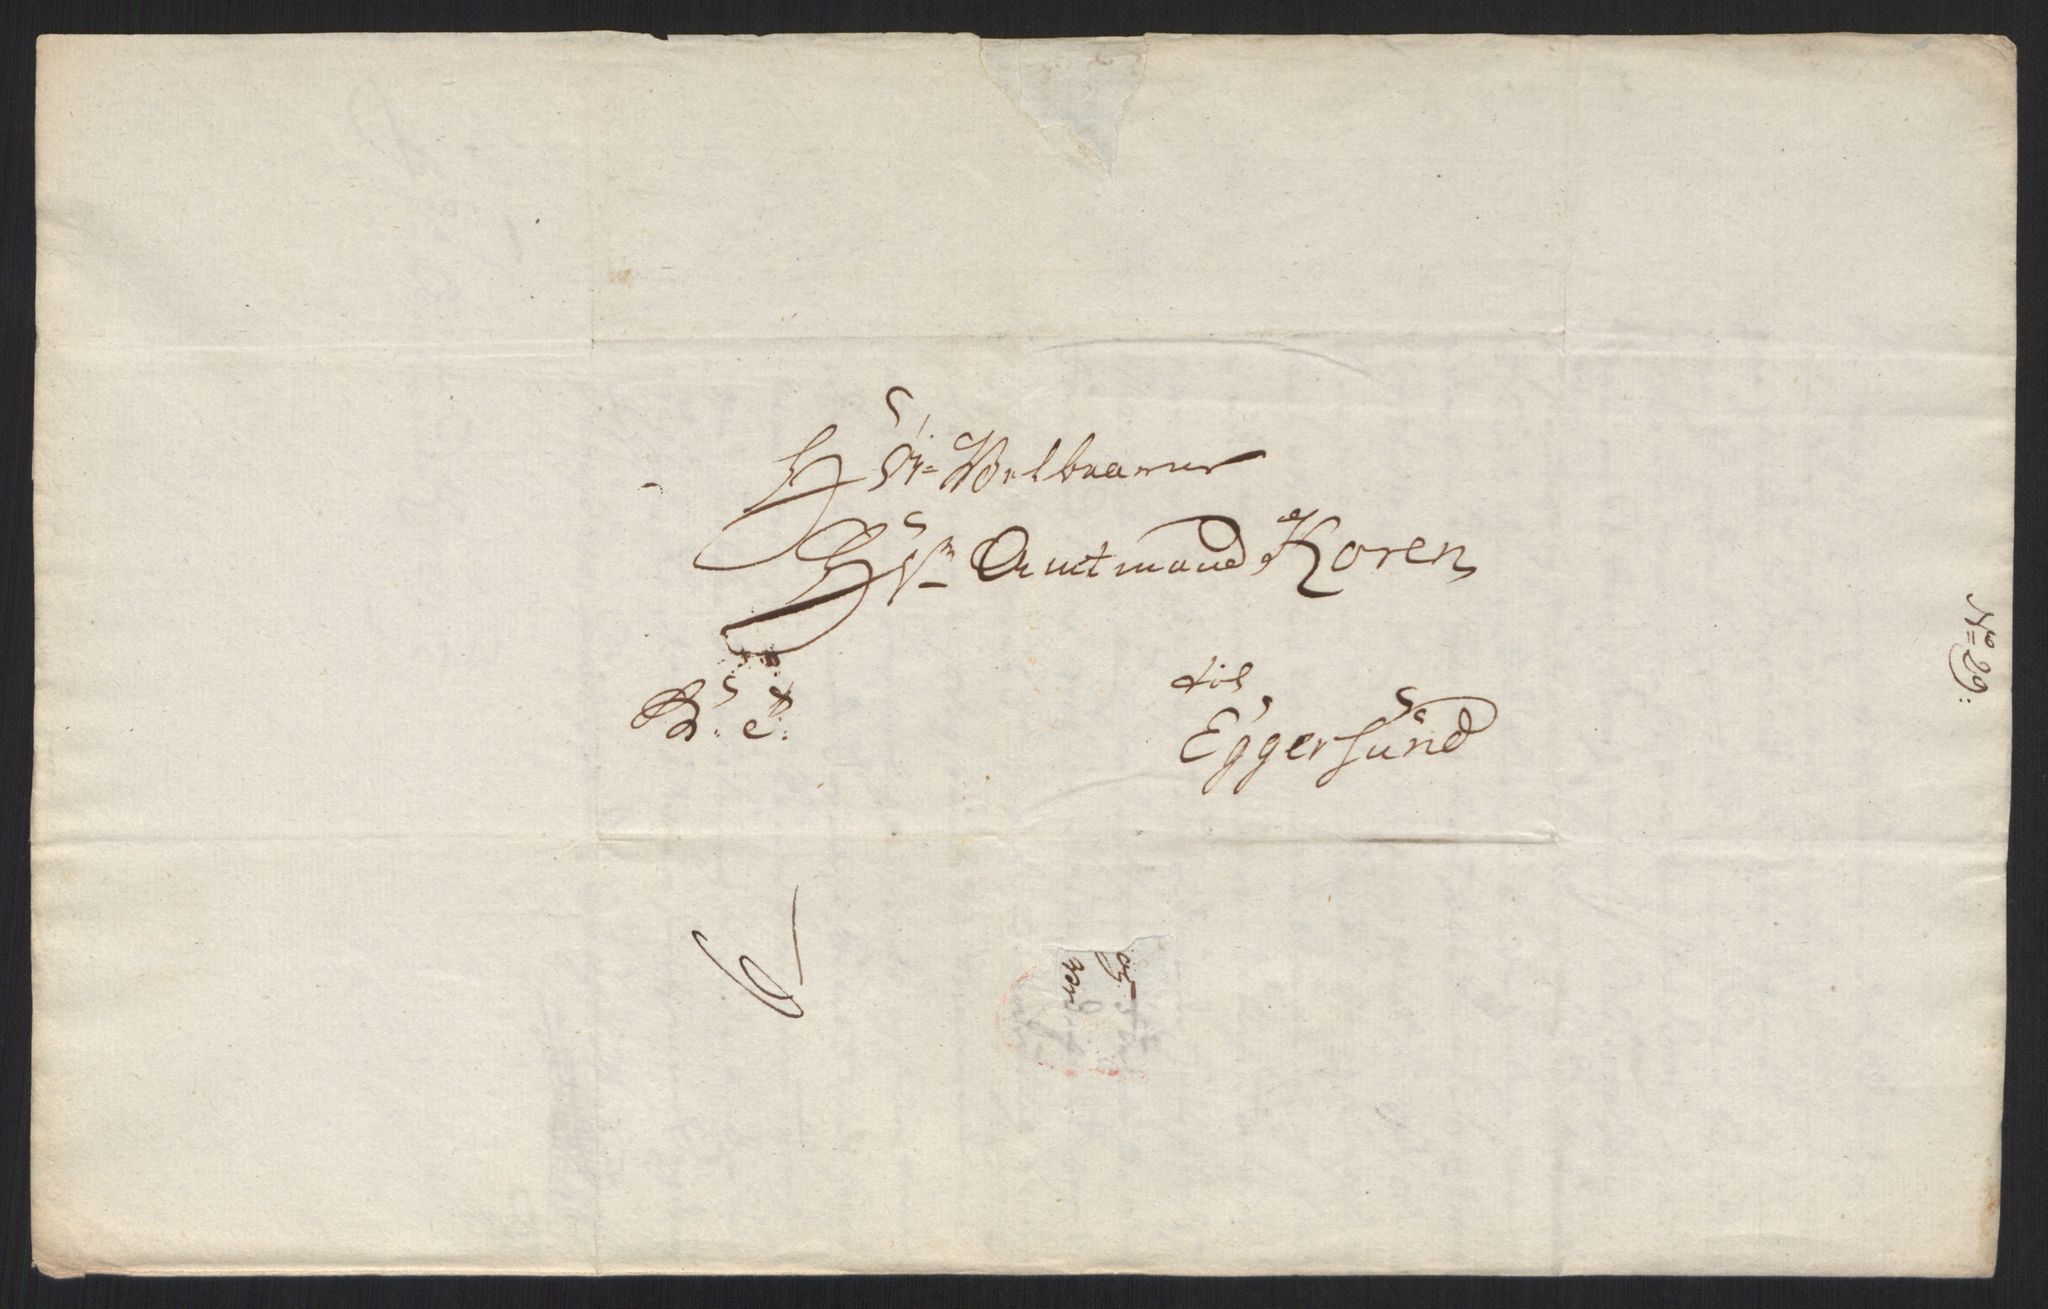 Hr: Velbaarne
Hrn Amtmand Koren
til
B: E:
Eggersund
No 29: